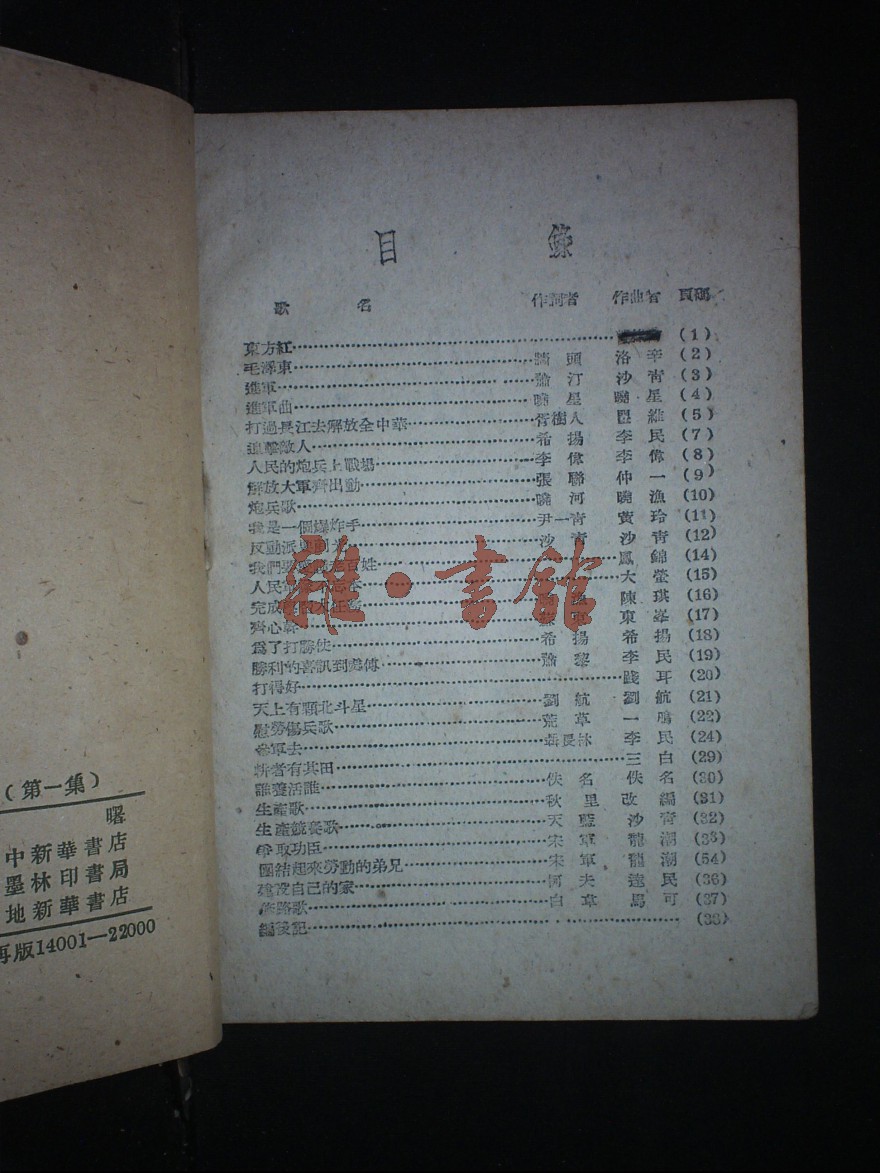 目 錄
歌 名 作詞者 作曲者 頁碼
東方紅 (1)
毛澤東 頭 洛辛 (2)
進軍 蕭汀 沙青 (3)
進軍曲 曉星 曉星 (4)
打過長江去解放全中華 胥樹人 維 (5)
追擊敵人 希揚 李民 (7)
人民的炮兵上戰場 李偉 李偉 (8)
解放大軍齊出動 張聯 仲一 (9)
炮兵歌 曉河 曉漁 (10)
我是一個爆炸手 尹一青 黃玲 (11)
反動派 沙青 沙青 (12)
我們 百姓 鳳錦 (14)
人民 大瑩 (15)
完成 陳琪 (16)
齊心 東峯 (17)
爲了打勝仗 希揚 希揚 (18)
勝利的喜訊到處傳 蕭黎 李民 (19)
打得好 踐耳 (20)
天上有顆北斗星 劉航 劉航 (21)
慰勞傷兵歌 荒草 一鳴 (22)
參軍去 林 李民 (24)
耕者有其田 三白 (29)
誰養活誰 佚名 佚名 (30)
生產歌 秋里 改編 (31)
生產競賽歌 天藍 沙青 (32)
爭取功臣 宋軍 龍潮 (33)
團結起來勞動的弟兄 宋軍 龍潮 (54)
建設自己的家 何夫 達民 (36)
修路歌 白草 馬可 (37)
編後記 (38)
雜·書館
（第一集）
曙
中新華書店
墨林印書局
地新華書店
再版14001—22000